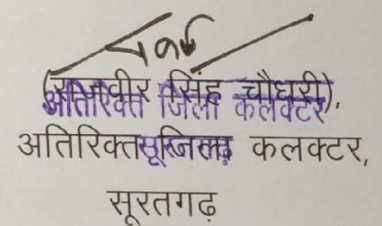 (राजवीर सिंह चौधरी),
अतिरिक्त जिला कलेक्टर
अतिरिक्त जिला कलक्टर,
सूरतगढ़
सूरतगढ़